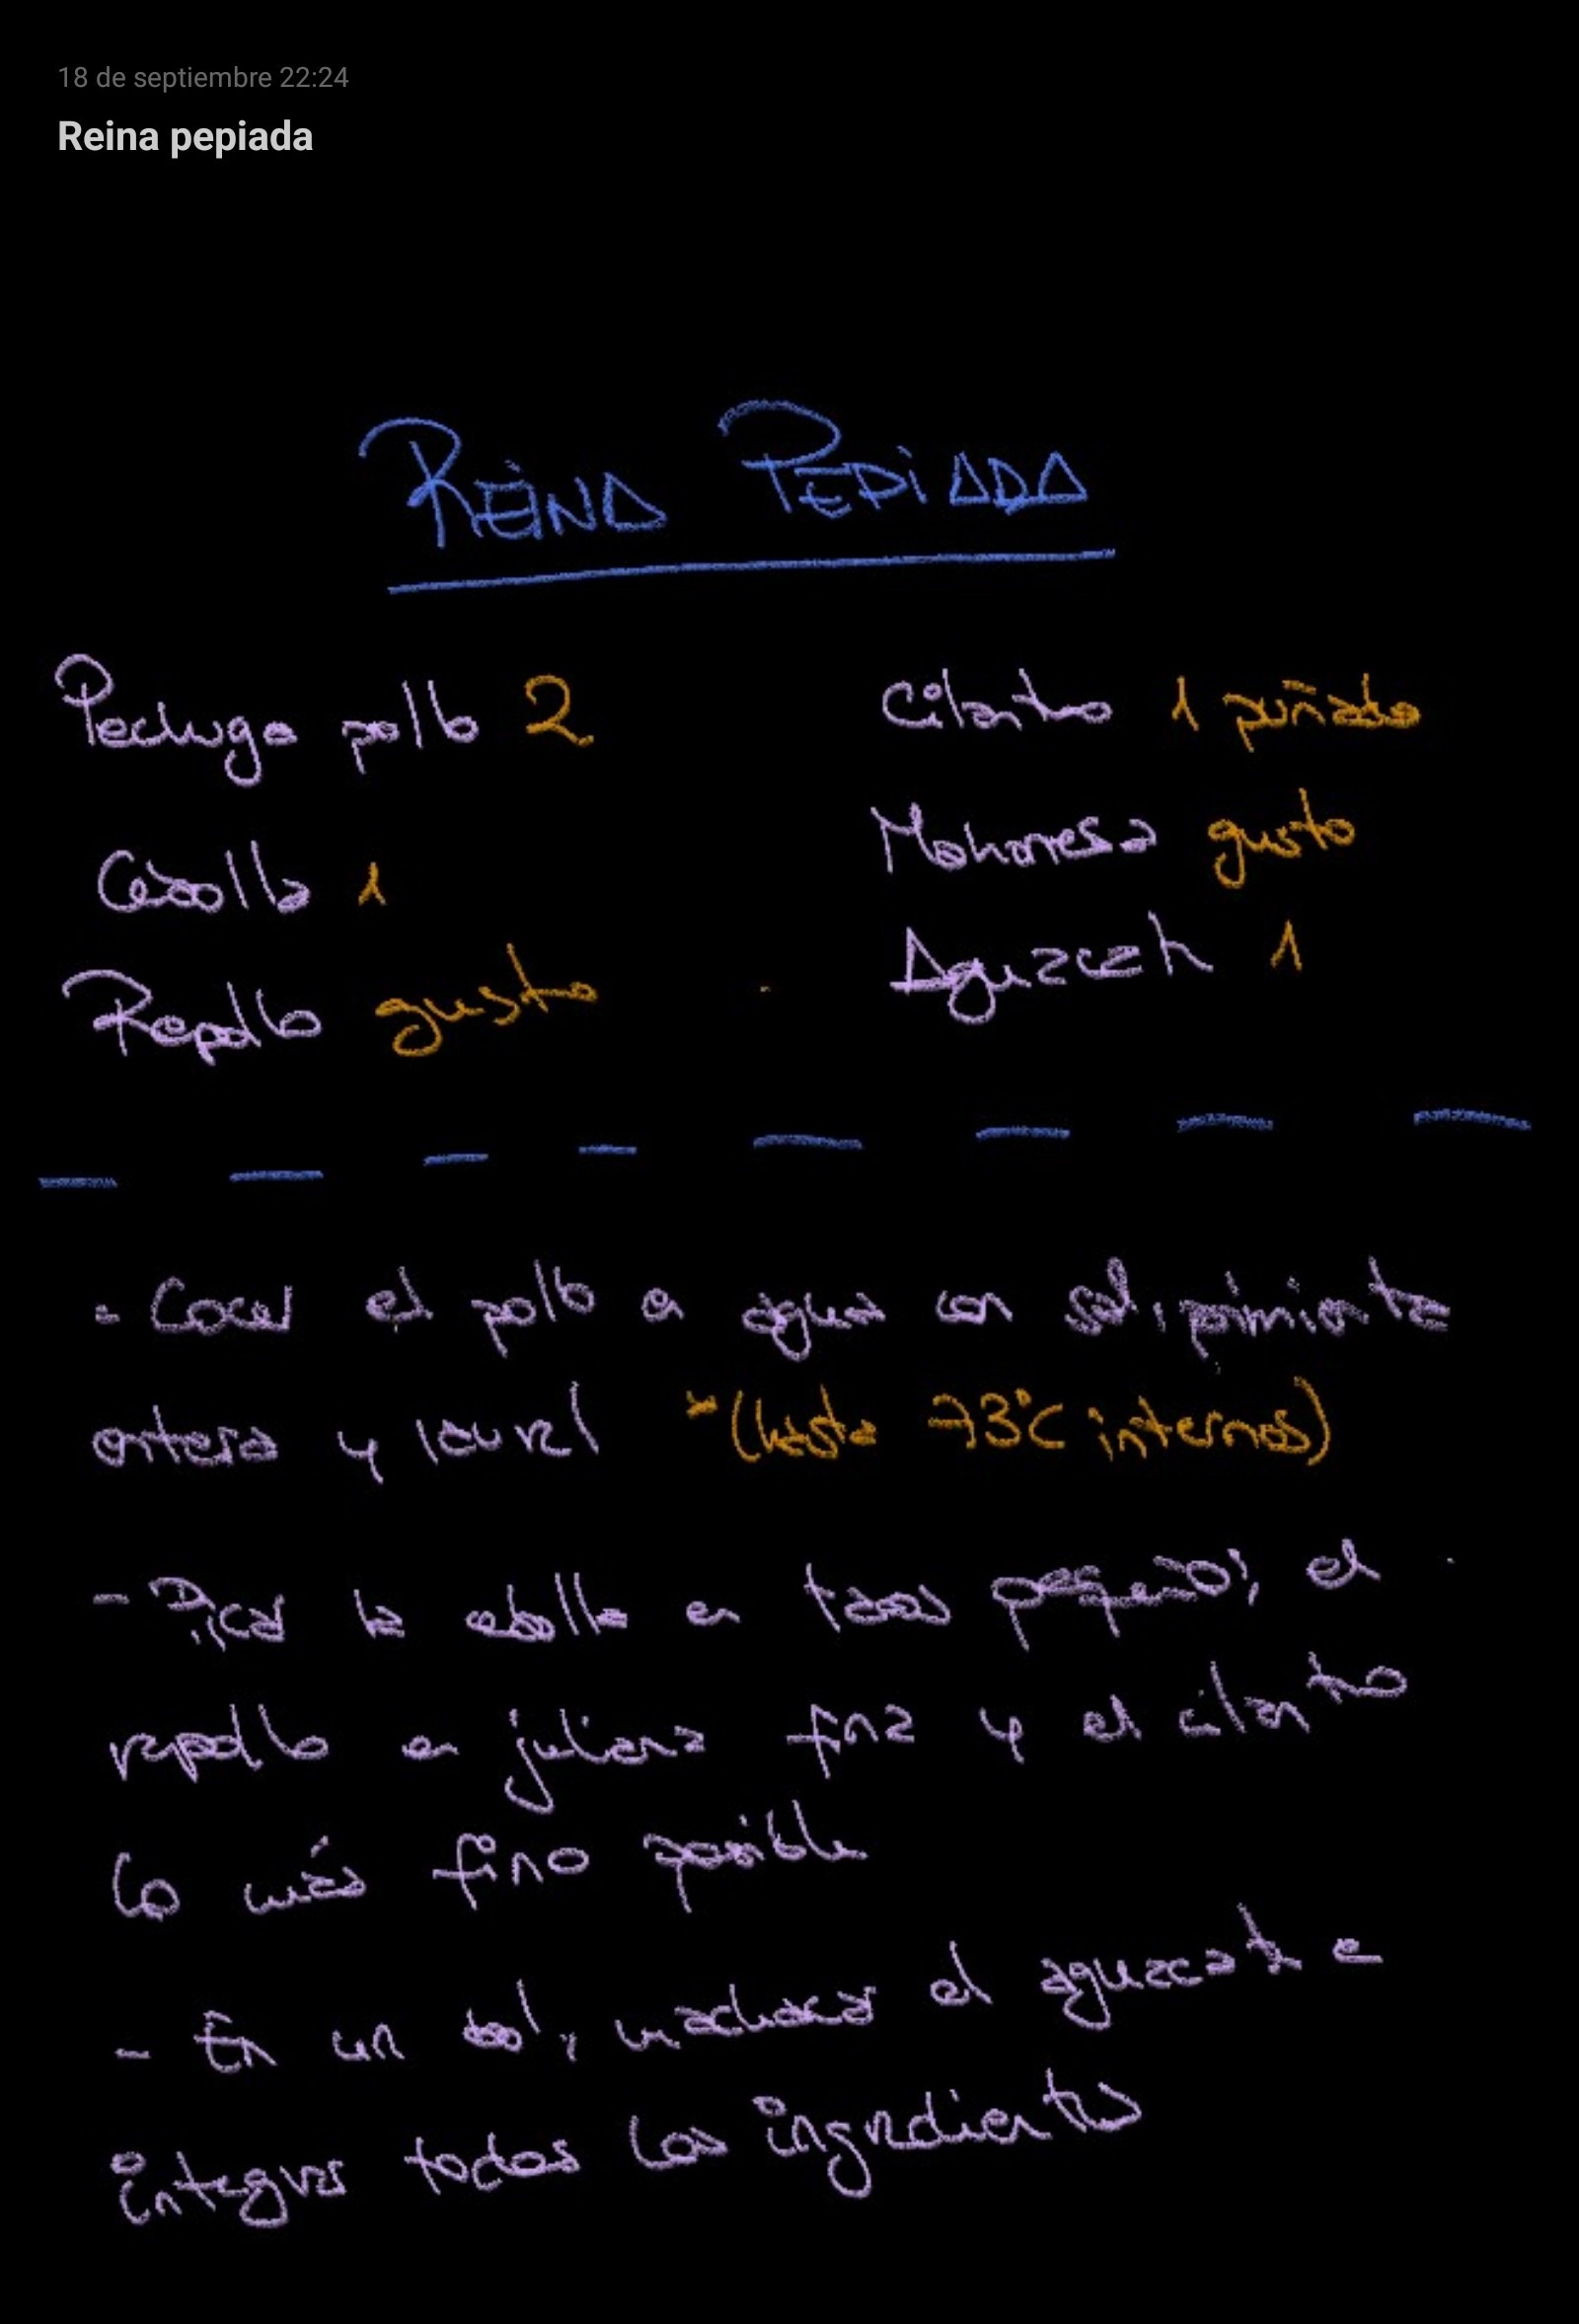 18 de septiembre 22:24
Reina pepiada
REINA PEPIADA
Pechuga pollo 2
Cebolla 1
Repollo gusto
Cilantro 1 puñado
Mahonesa gusto
Aguacate 1
- Cocer el pollo en agua con sal, pimienta
entera y laurel *(hasta 73°C internos)
- Picar la cebolla en tacos pequeños, el
repollo en juliana fina y el cilantro
lo más fino posible
- En un bol, machacar el aguacate e
integrar todos los ingredientes